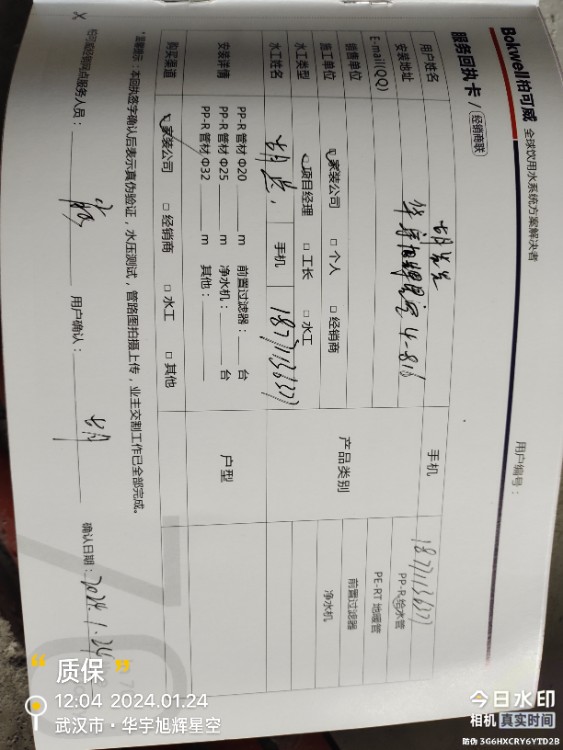 Bokwell柏可威 全球饮用水系统方案解决者
服务回执卡 / 经销商联
用户编号：
用户姓名 手机 18771136377
安装地址 华宇旭辉星空 4-816
E-mail(QQ) 产品类别 PP-R给水管
PE-RT 地暖管
前置过滤器
净水机
销售单位
施工单位 家装公司 □ 个人 □ 经销商
水工类型 项目经理 □ 工长 □ 水工
水工姓名 手机 18771136377
安装详情 PP-R 管材 Φ20 m 前置过滤器： 台
PP-R 管材 Φ25 m 净水机： 台
PP-R 管材 Φ32 m 其他：
户型
购买渠道 家装公司 □ 经销商 □ 水工 □ 其他
*温馨提示：本回执签字确认后表示真伪验证，水压测试，管路图拍摄上传，业主交割工作已全部完成。
柏可威经销网点服务人员： 用户确认： 确认日期：2024.1.24
质保
12:04 2024.01.24
武汉市·华宇旭辉星空
今日水印
相机 真实时间
防伪 3G6HXCRY6YTD2B